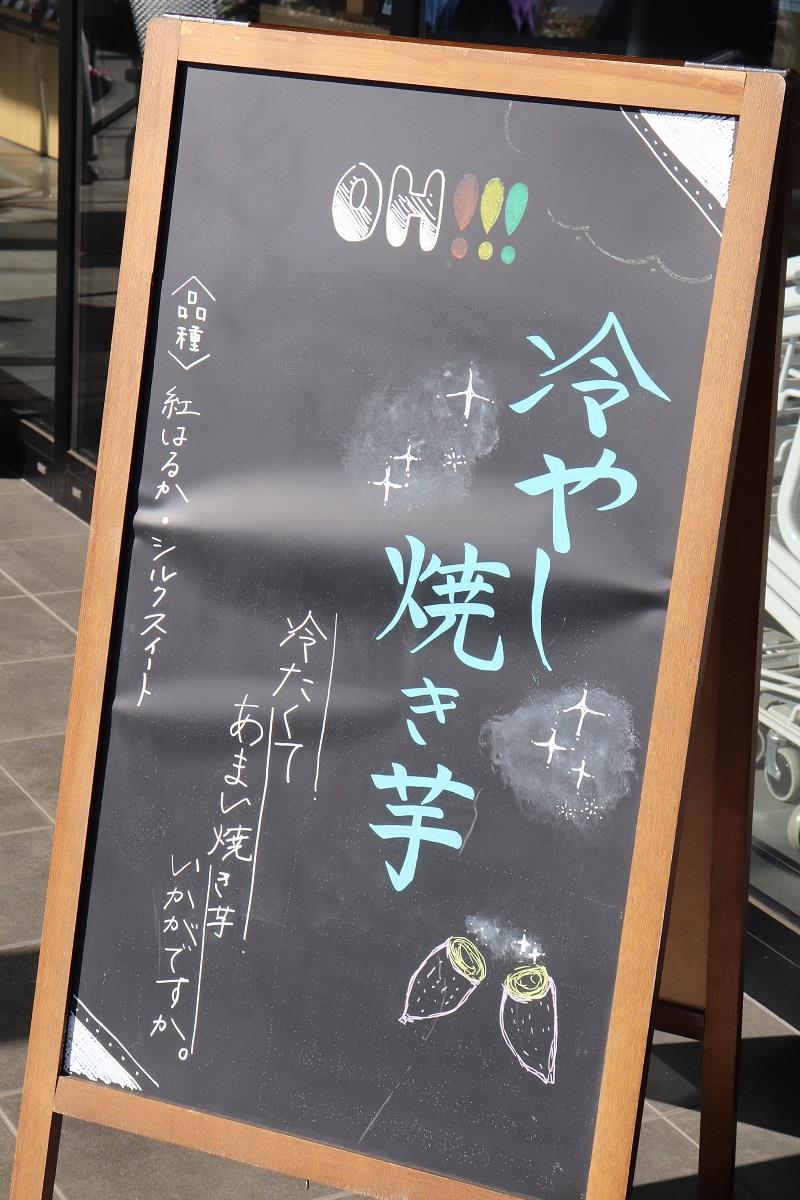 OH!!!
冷やし
焼き芋
冷たくて
あまい焼き芋
いかがですか。
〈品種〉紅はるか・シルクスイート